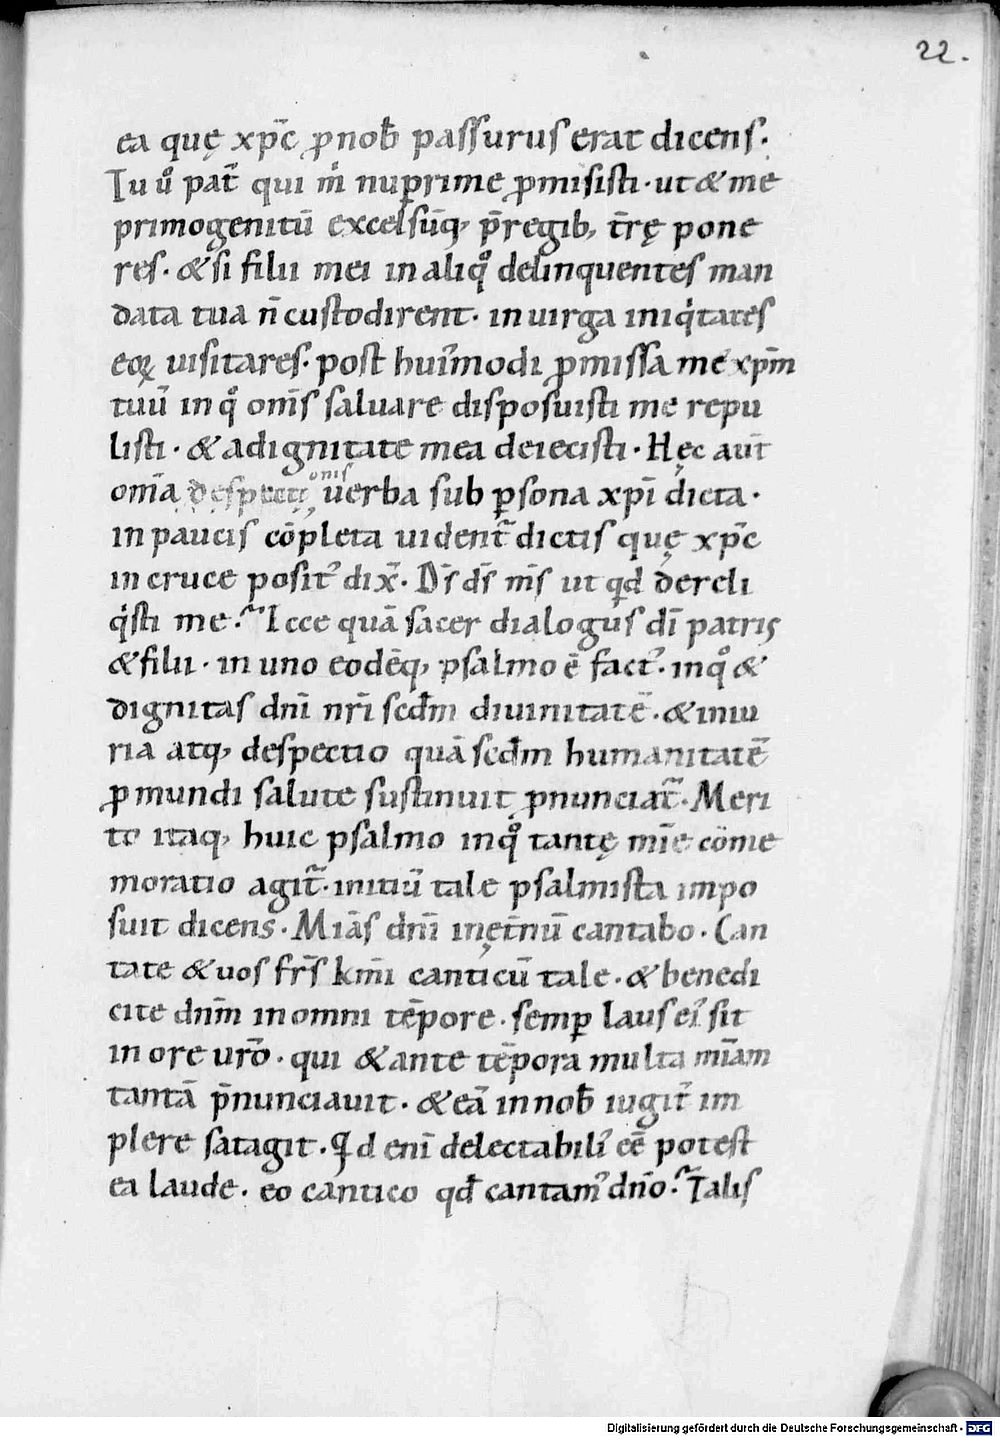 22.
ea quę xp̄c ꝓ nob̄ passurus erat dicens.
Tu uͦ pat̄ qui m̄ nuꝑrime ꝓmisisti. ut & me
primogenitū excelsūq; p̄ regib; t̄rę pone
res. & si filii mei in aliqͦ delinquentes man
data tua n̄ custodirent. in uirga iniqͥtates
eoꝝ uisitares. post hui᾽modi ꝓmissa me xpm̄
tuū in qͦ om̄s saluare disposuisti me repu
listi. & a dignitate mea deiecisti. Hęc aut̄
om̄ia despecti, om̄is uerba sub ꝑsona xpī dicta.
in paucis cōpleta uident᷑ dictis quę xp̄c
in cruce posit᾽ dix̄. D̄s d̄s m̄s ut qͥd dereli
qͥsti me? Ecce quā sacer dialogus dī patris
& filii. in uno eodēq; psalmo ē fact᾽. in qͦ &
dignitas dn̄i nr̄i scd̄m diuinitatē. & iniu
ria atq; despectio quā scd̄m humanitatē
ꝓ mundi salute sustinuit ꝓnunciat᷑. Meri
to itaq; huic psalmo in qͦ tantę mīę cōme
moratio agit᷑. initiū tale psalmista impo
suit dicens. Mīas dn̄i in ęt̄nū cantabo. Can
tate & uos fr̄s km̄i canticū tale. & benedi
cite dnm̄ in omni tēpore. semꝑ laus ei᾽ sit
in ore ur̄o. qui & ante tēpora multa mīam
tantā p̄nunciauit. & eā in nob̄ iugit᷑ im
plere satagit. Qͥd enī delectabili᾽ eē potest
ea laude. eo cantico qd̄ cantam᾽ dn̄o? Talis
Digitalisierung gefördert durch die Deutsche Forschungsgemeinschaft - DFG